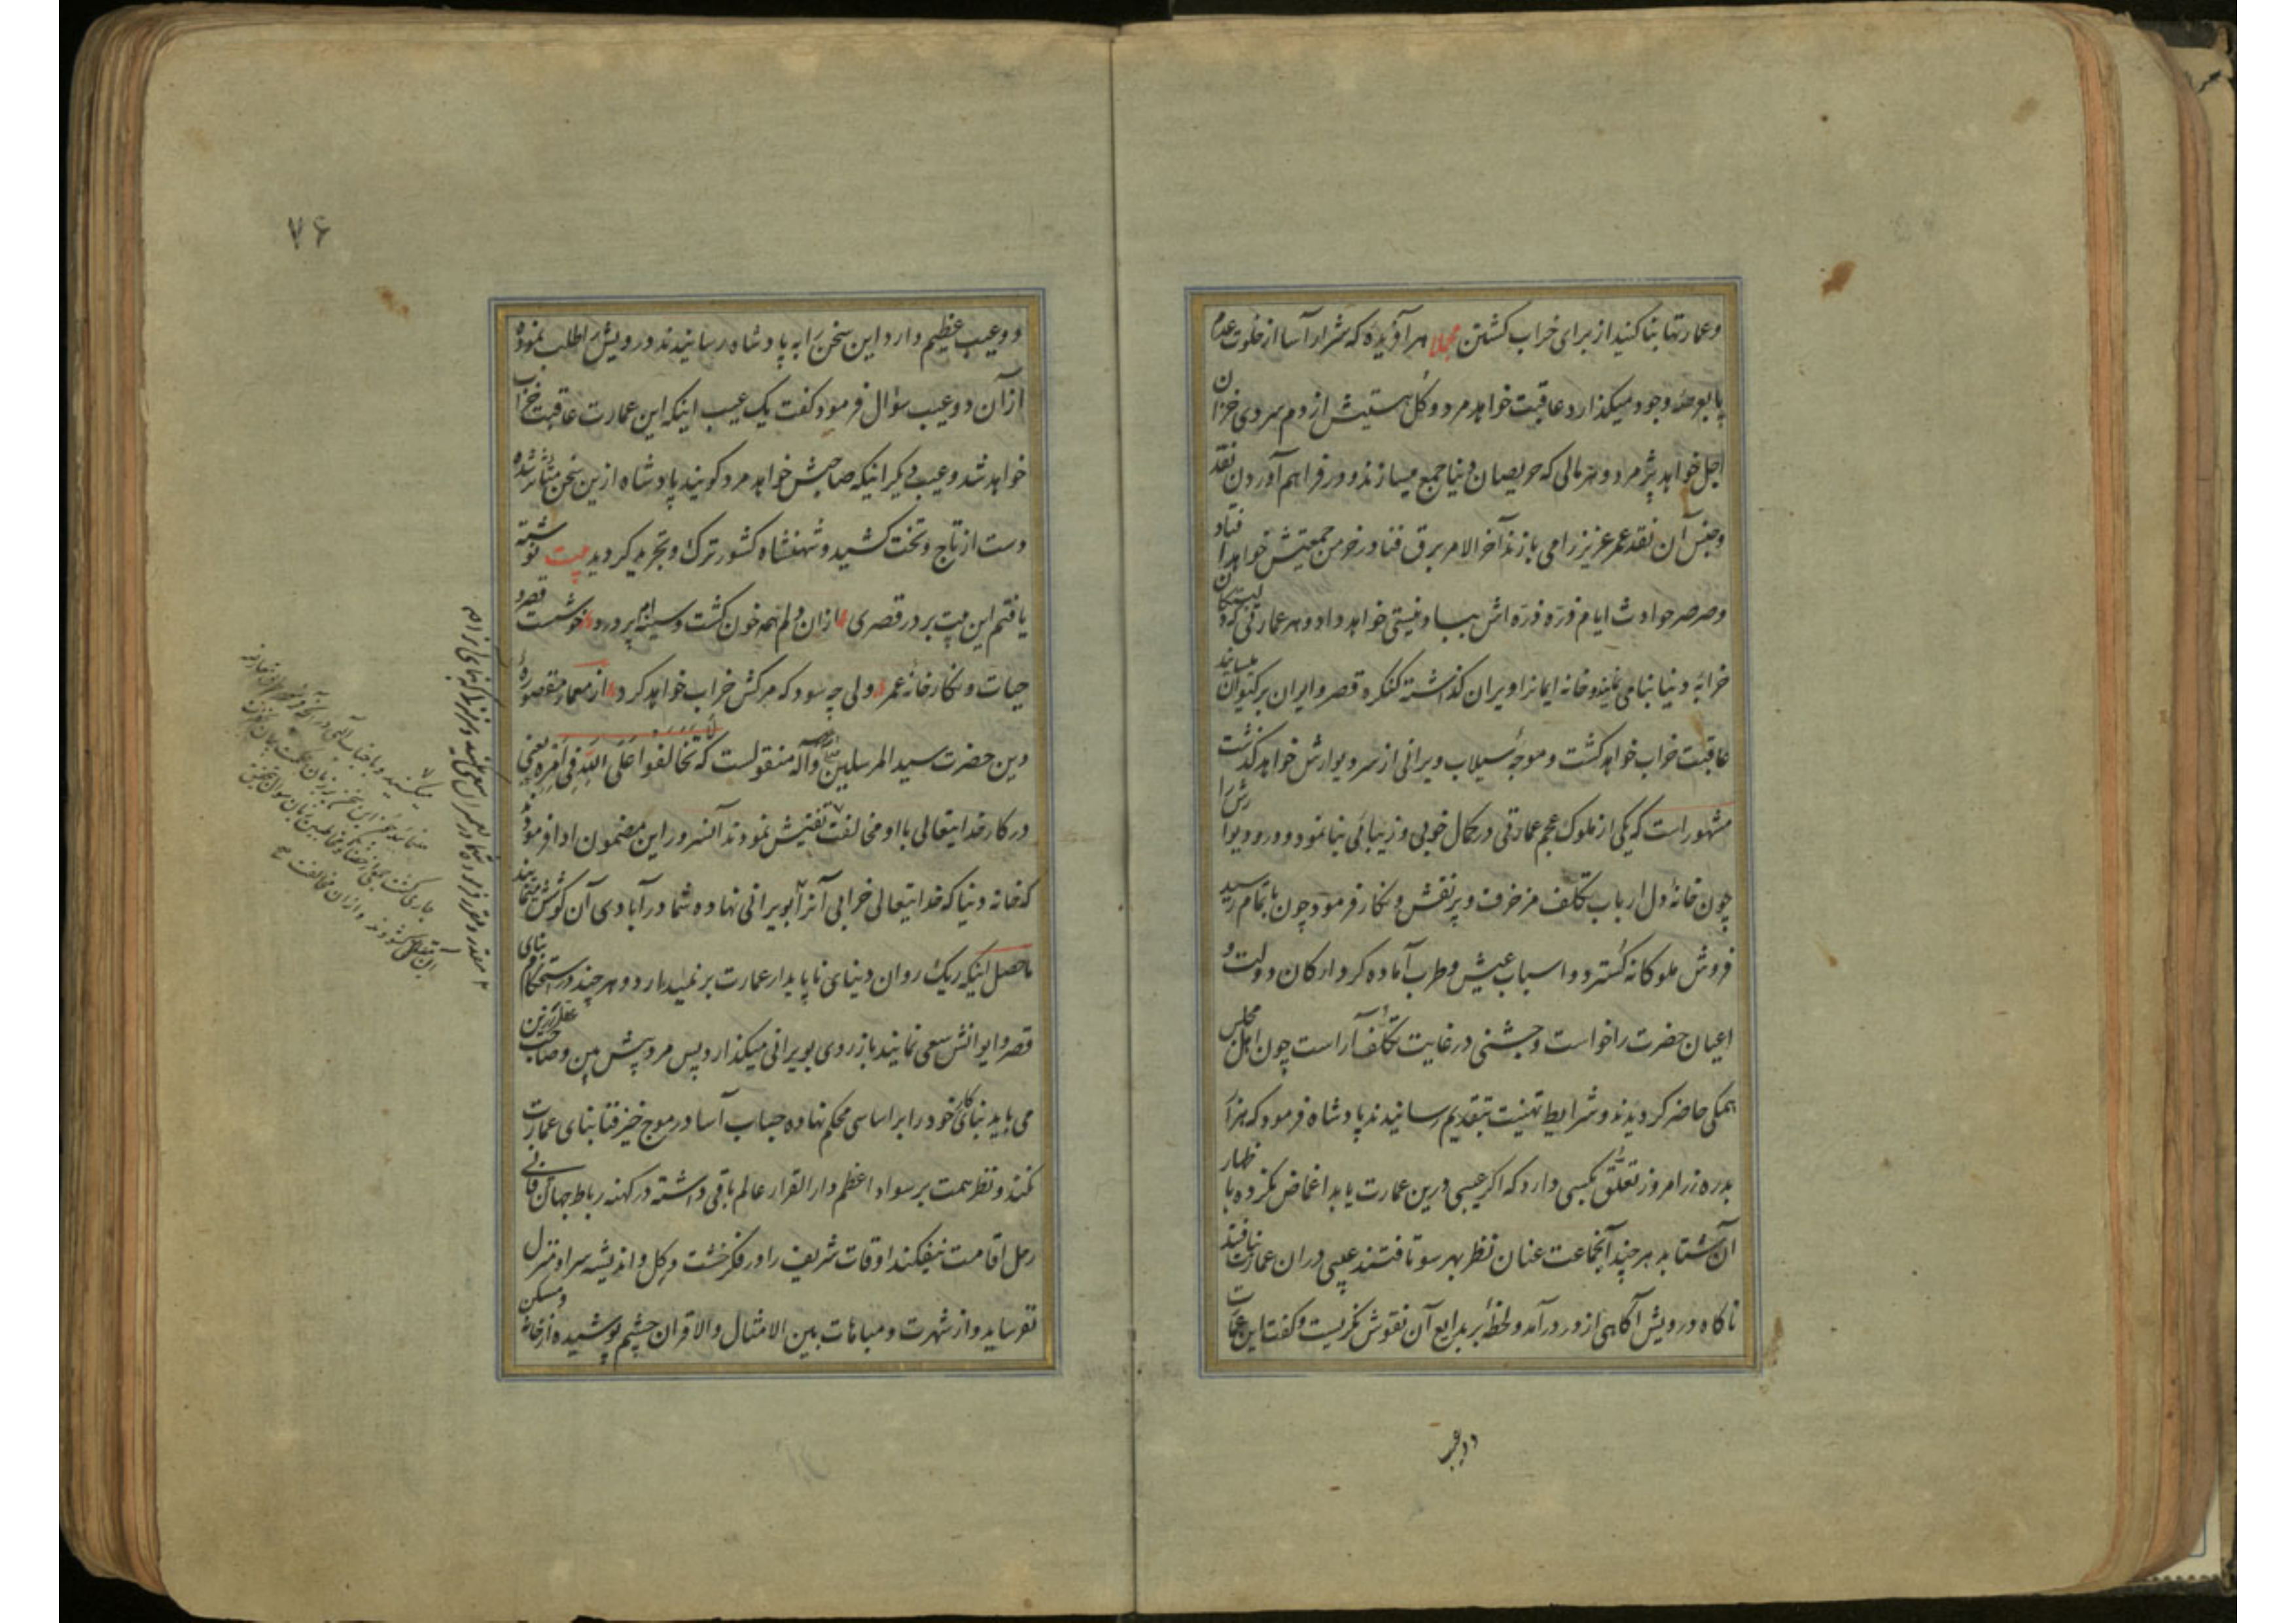 وعمارتها بنا کنید از برای خراب کشتن مجملا هر آفریده که شرار آسا از خلوت عدم
پا بعرصهٔ وجود میکذارد عاقبت خواهد مرد و کل هستیش از دم سردی خزان
اجل خواهد پژمرد و هر مالی که حریصان دنیا جمع میسازند و در فراهم آوردن نقد
وجنس آن نقد عمر عزیز را می بازند آخر الامر برق فنا در خرمن جمعیتش خواهد افتاد
وصرصر حوادث ایام ذره ذره اش بباد نیستی خواهد داد و هر عمارتی که در
خرابهٔ دنیا بنا می نمایند و خانه ایمانرا ویران کذاشته کنکره قصر و ایوان بر کیوان میسایند
عاقبت خراب خواهد کشت و موجهٔ سیلاب ویرانی از سر دیوارش خواهد کذشت
مشهور است که یکی از ملوک عجم عمارتی در کمال خوبی و زیبائی بنا نمود و در و دیوارش را
چون خانهٔ دل ارباب تکلف مزخرف و پر نقش و نکار فرمود چون باتمام رسید
فروش ملوکانه کسترد و اسباب عیش و طرب آماده کرد و ارکان دولت و
اعیان حضرت را خواست و جشنی در غایت تکلف آراست چون اهل مجلس
همکی حاضر کردیدند و شرایط تهنیت بتقدیم رسانیدند پادشاه فرمود که هزار
بدره زر امروز تعلق بکسی دارد که اکر عیبی درین عمارت یابد اغماض نکرده باظهار
آن شتابد هر چند آنجماعت عنان نظر بهر سو تافتند عیبی دران عمارت نیافتند
ناکاه درویش آکاهی از در درآمد و لحظهٔ بر بدایع آن نقوش نکریست و کفت این عمارت
دو عیب
۷۶
دو عیب عظیم دارد این سخن را به پادشاه رسانیدند درویش را طلب نموده
ازان دو عیب سؤال فرمود کفت یک عیب اینکه این عمارت عاقبت خراب
خواهد شد و عیب دیکر اینکه صاحبش خواهد مرد کویند پادشاه ازین سخن متأثر شده
دست از تاج و تخت کشید و شهنشاه کشور ترک و تجرید کردید بیت نوشته
یافتم این بیت بر در قصری ازان دلم همه خون کشت و سینه ام پر درد خوشست قصر
حیات و نکارخانهٔ عمر ولی چه سود که مرکش خراب خواهد کرد از معمار مقصورهٔ
دین حضرت سید المرسلین وآله منقولست که تخالفوا علی الله فی امره یعنی
در کار خدایتعالی با او مخالفت تفتیش نمودند آنسرور این مضمون ادا فرمود
که خانه دنیا که خدایتعالی خرابی آنرا بویرانی نهاده شما در آبادی آن کوشش مینمایید
ماحصل اینکه ریک روان دنیای ناپایدار عمارت برنمیدارد و هر چند در استحکام بنای
قصر و ایوانش سعی نمایند باز روی بویرانی میکذارد پس مرد پیش بین و صاحب عقل رزین
می باید بنای کار خود را بر اساسی محکم نهاده حباب آسا در موج خیز فنا بنای عمارت
نکند و نظر همت بر سواد اعظم دار القرار عالم باقی داشته در کهنه رباط جهان فانی
رحل اقامت نیفکند اوقات شریف را در فکر خشت و کل و اندیشه سرا و منزل
نفرساید و از شهرت و مباهات بین الامثال والاقران چشم پوشیده از خانه و مسکن